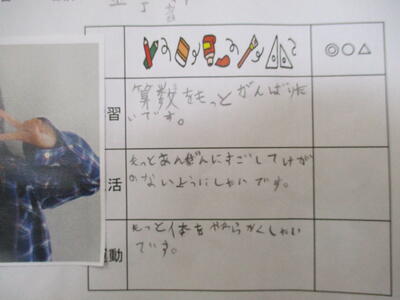 ◎○△
習
算数をもっとがんばりた
いです。
活
もっとあんぜんにすごしてけが
のないようにしたいです。
運動
もっと体をやわらかくしたい
です。